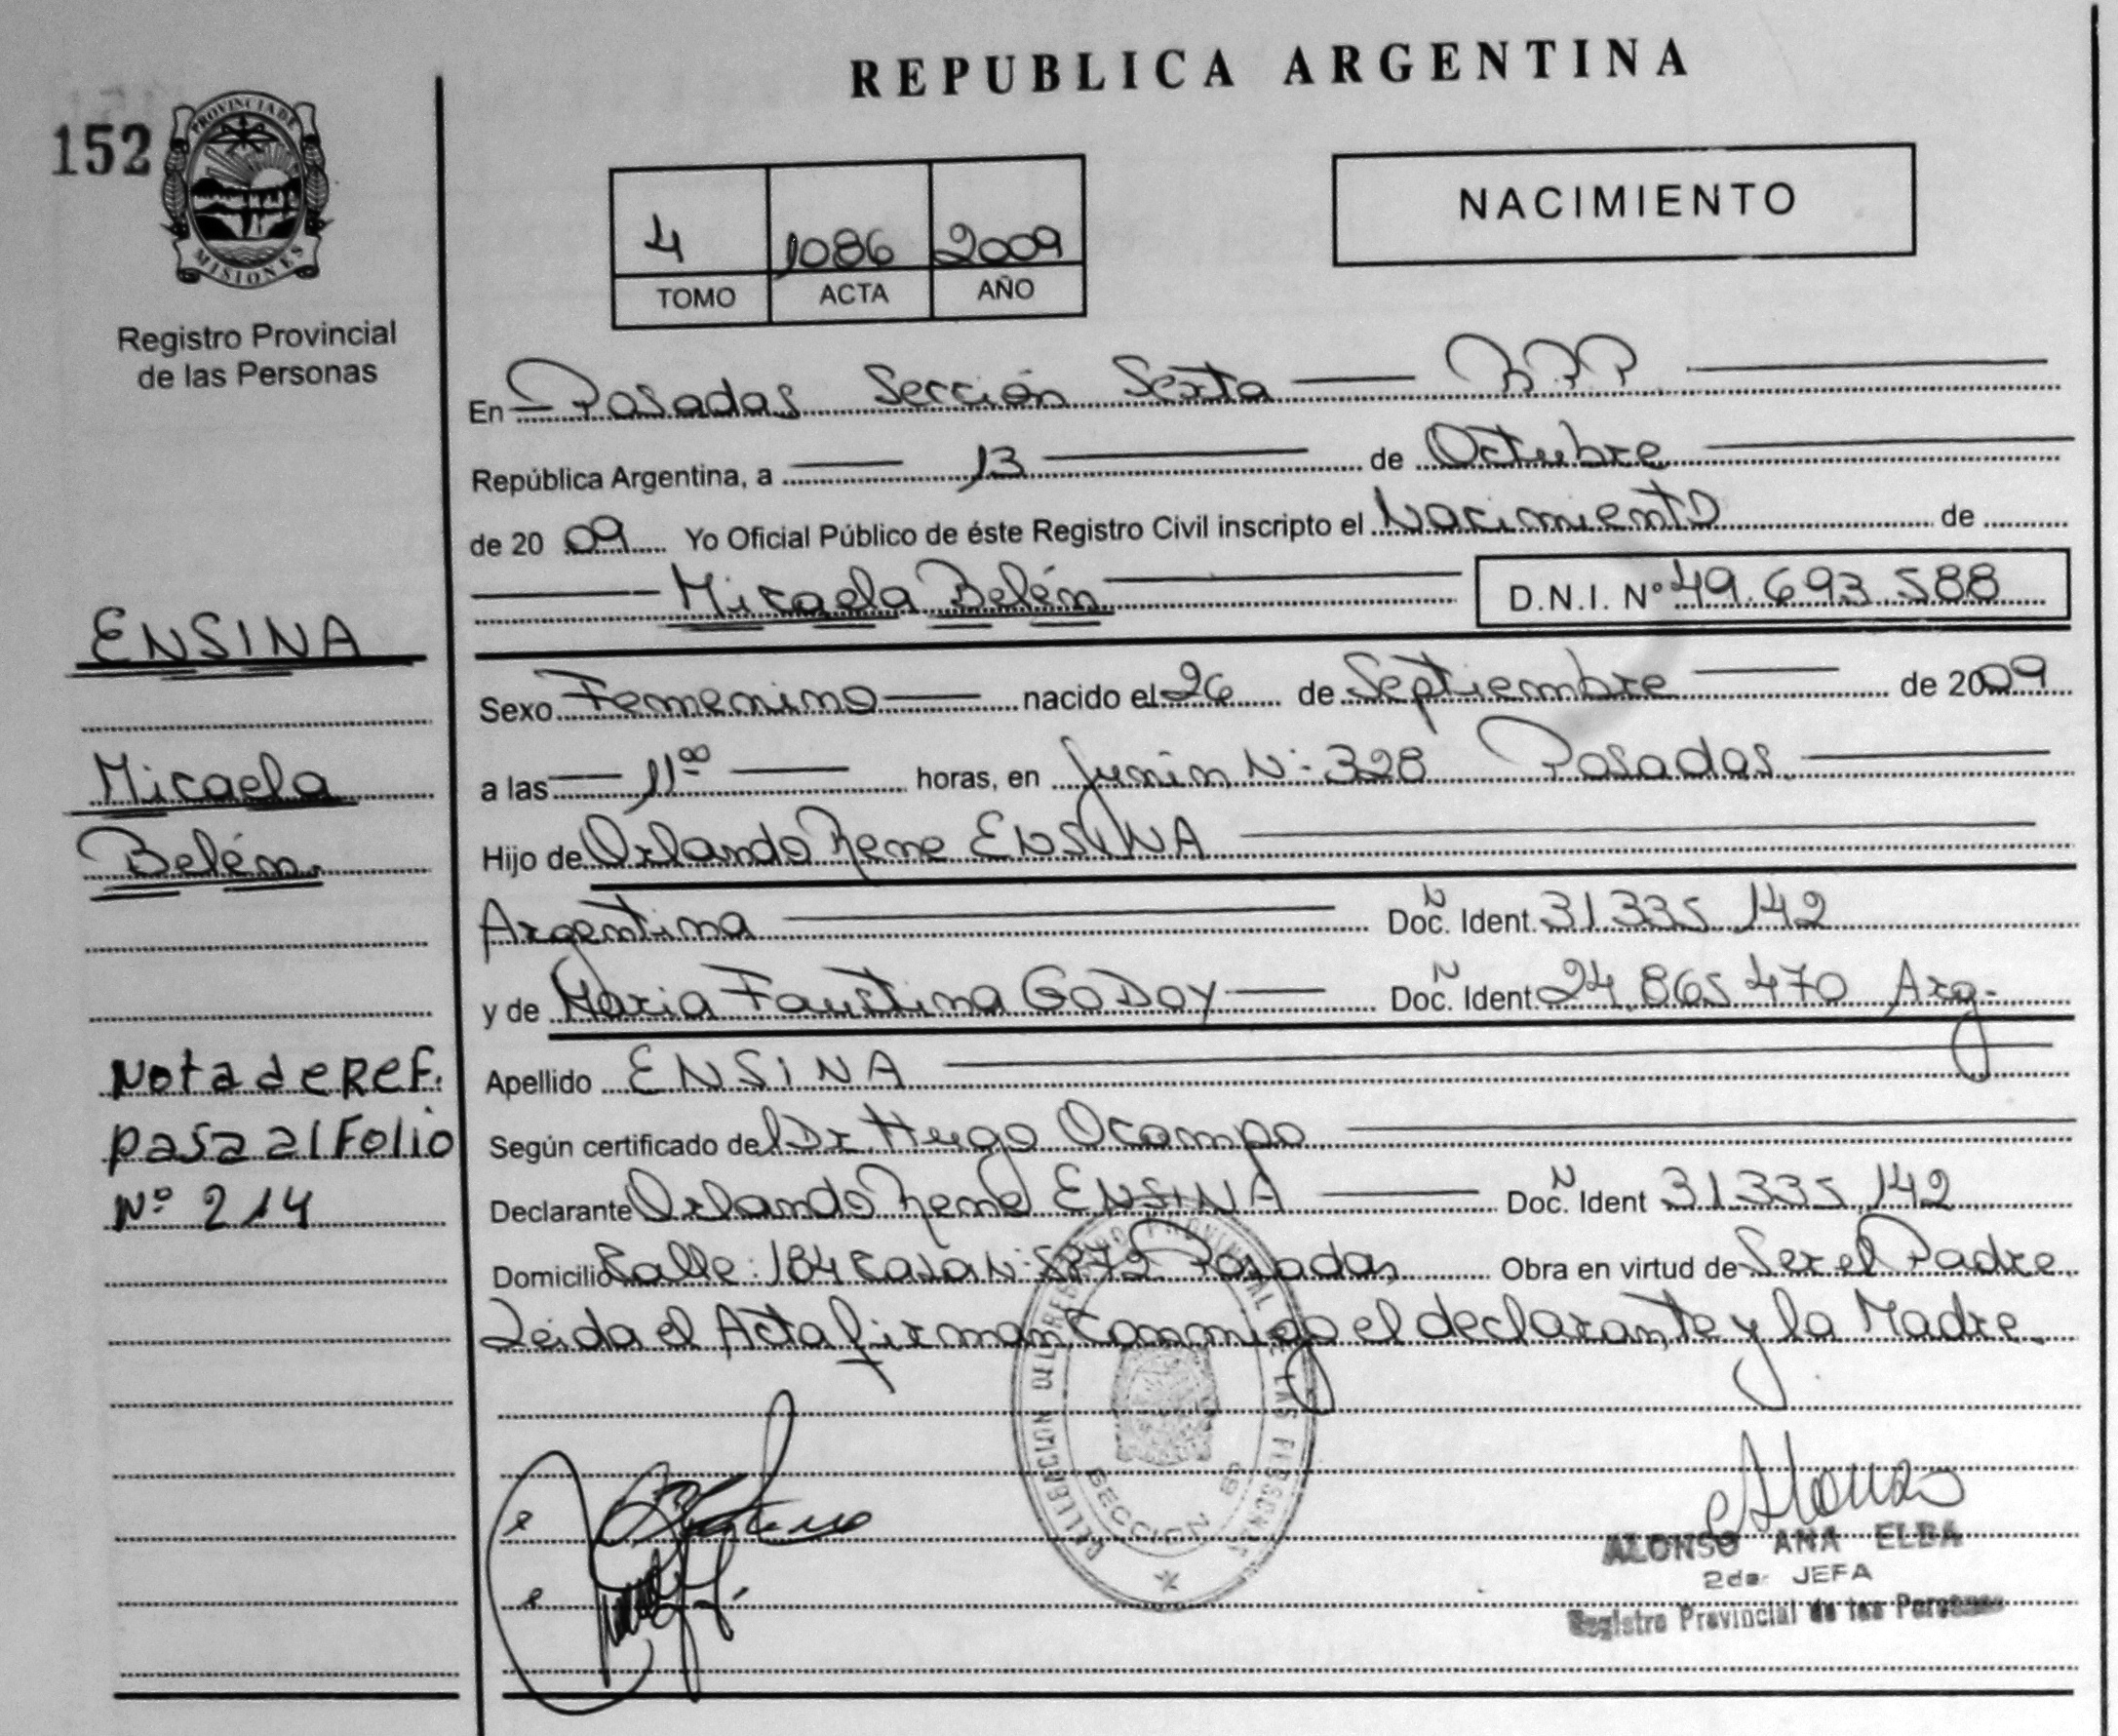 REPUBLICA ARGENTINA
152
PROVINCIA DE
MISIONES
Registro Provincial
de las Personas
4 1086 2009
TOMO ACTA AÑO
NACIMIENTO
En Posadas Sección Sexta
República Argentina, a 13 de Octubre
de 2009 Yo Oficial Público de éste Registro Civil inscripto el Nacimiento de
Micaela Belén D.N.I. Nº 49.693.588
Sexo Femenino nacido el 26 de Septiembre de 2009
a las 11ºº horas, en Junin N: 328 Posadas.
Hijo de Orlando Rene ENSINA
Argentina Doc. Ident. 31.335.142
y de Maria Faustina GODOY Doc. Ident. 24.865.470 Arg.
Apellido ENSINA
Según certificado del Dr. Hugo Ocampo
Declarante Orlando Rene ENSINA Doc. Ident 31.335.142
Domicilio Calle: 184 Casa N: 5872 Posadas Obra en virtud de Ser el Padre.
Leida el Acta firman conmigo el declarante y la Madre.
ENSINA
Micaela
Belén.
Nota de Ref.
pasa al Folio
Nº 214
DELEGACION DEL REGISTRO PROVINCIAL DE LAS PERSONAS
SECCION
Alonso
ALONSO ANA ELBA
2da. JEFA
Registro Provincial de las Personas